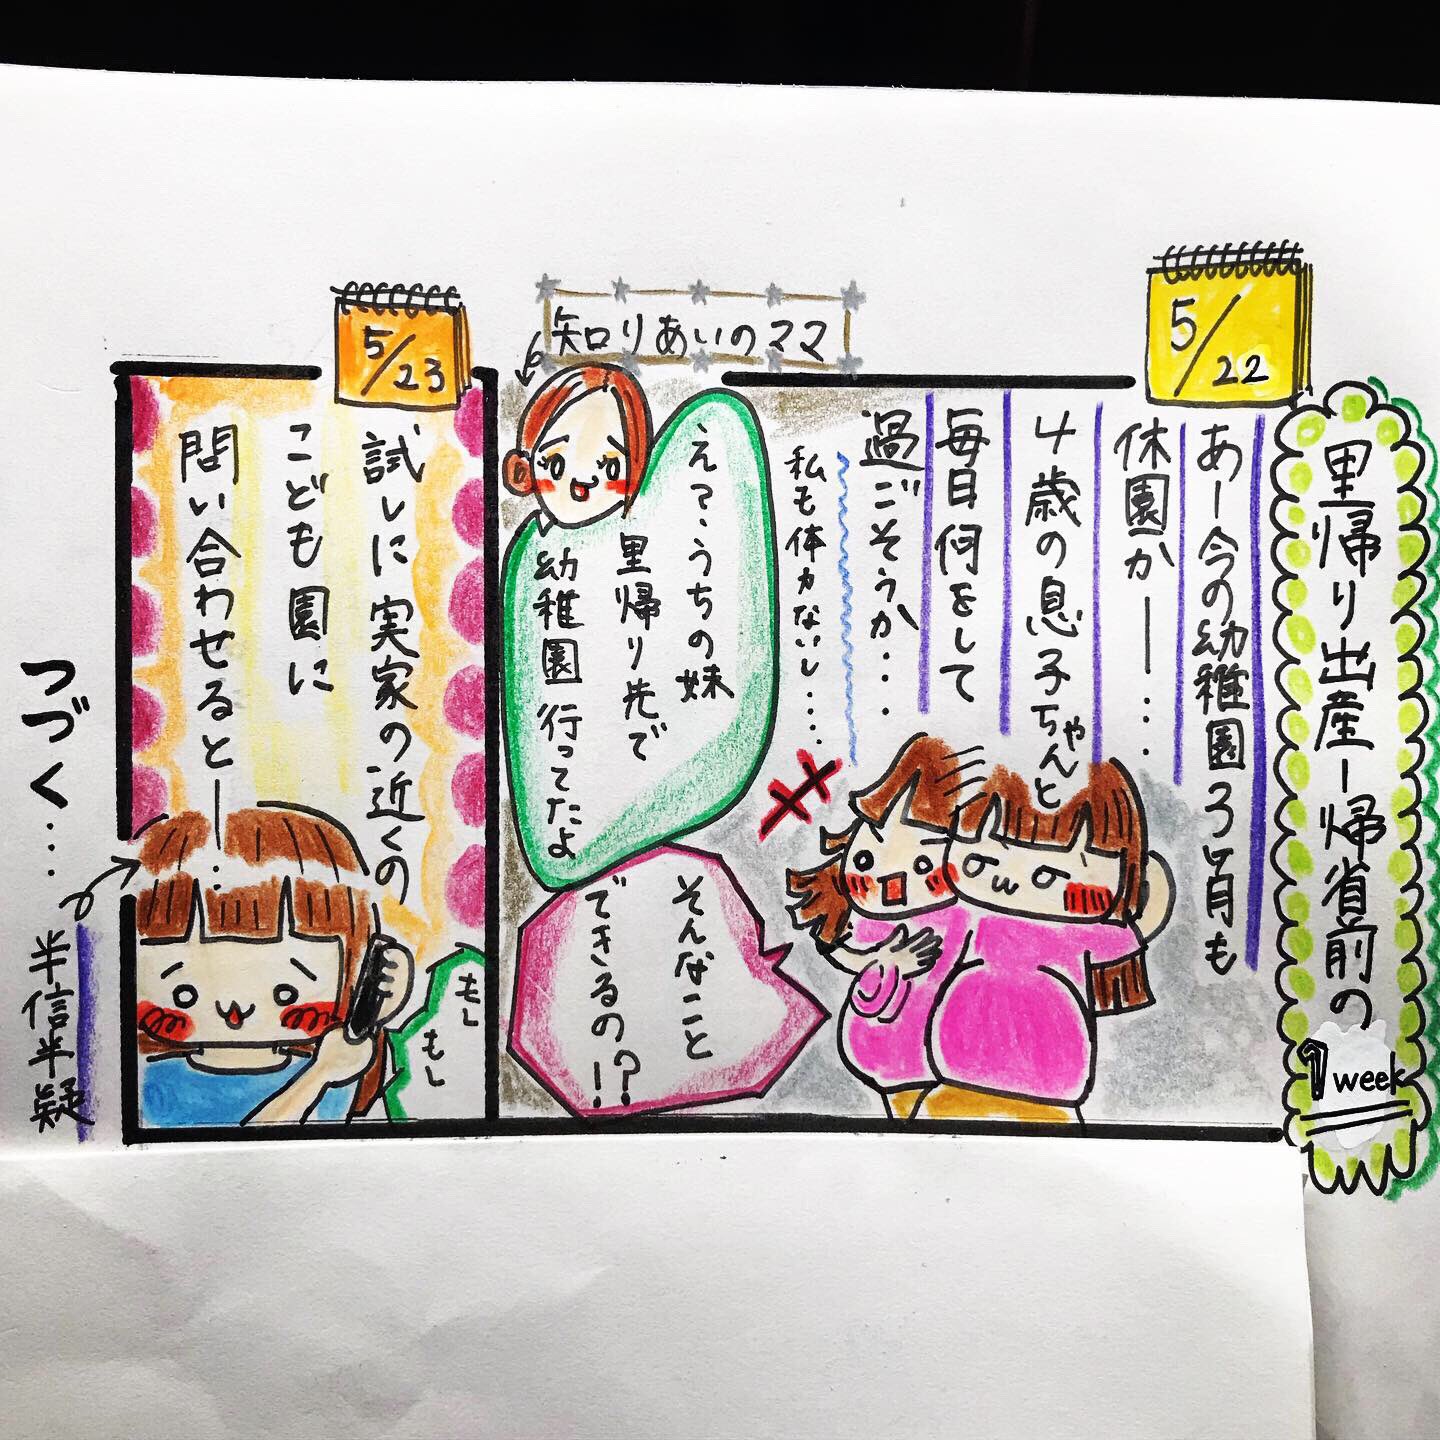 里帰り出産ー帰省前の
1week
5/22
あー今の幼稚園3ヶ月も
休園かー・・・
4歳の息子ちゃんと
毎日何をして
過ごそうか・・・
私も体力ないし・・・・
知りあいのママ
え?、うちの妹
里帰り先で
幼稚園行ってたよ
そんなこと
できるの!?
5/23
試しに実家の近くの
こども園に
問い合わせるとー・・
もし
もし
半信半疑
つづく・・・